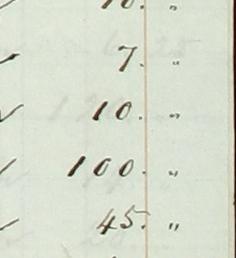 10. "
7. "
10. "
100. "
45. "